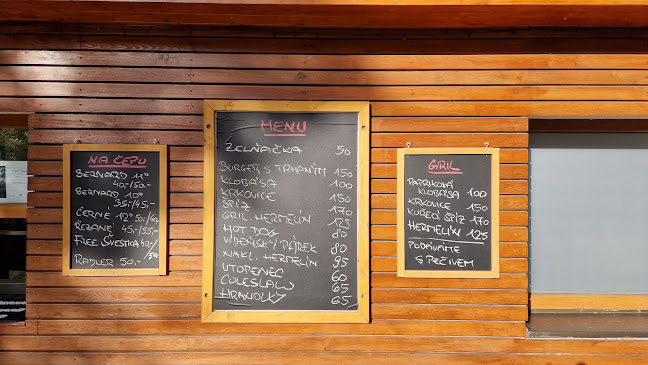 NA ČEPU
BERNARD 11°
40,-/50,-
BERNARD 10°
35,-/45,-
ČERNÉ 12° 50,-/60,-
ŘEZANÉ 45,-/55,-
FREE ŠVESTKA 40,-/50,-
RADLER 50,-
MENU
ZELŇAČKA 50
BURGER S TRHANÝM 150
KLOBÁSA 100
KRKOVICE 150
ŠPÍZ 170
GRIL. HERMELÍN 125
HOT DOG 80
VÍDEŇSKÝ PÁREK 80
NAKL. HERMELÍN 95
UTOPENEC 60
COLESLAW 65
HRANOLKY 65
GRIL
PAPRIKOVÁ
KLOBÁSA 100
KRKOVICE 150
KUŘECÍ ŠPÍZ 170
HERMELÍN 125
PODÁVÁME
S PEČIVEM